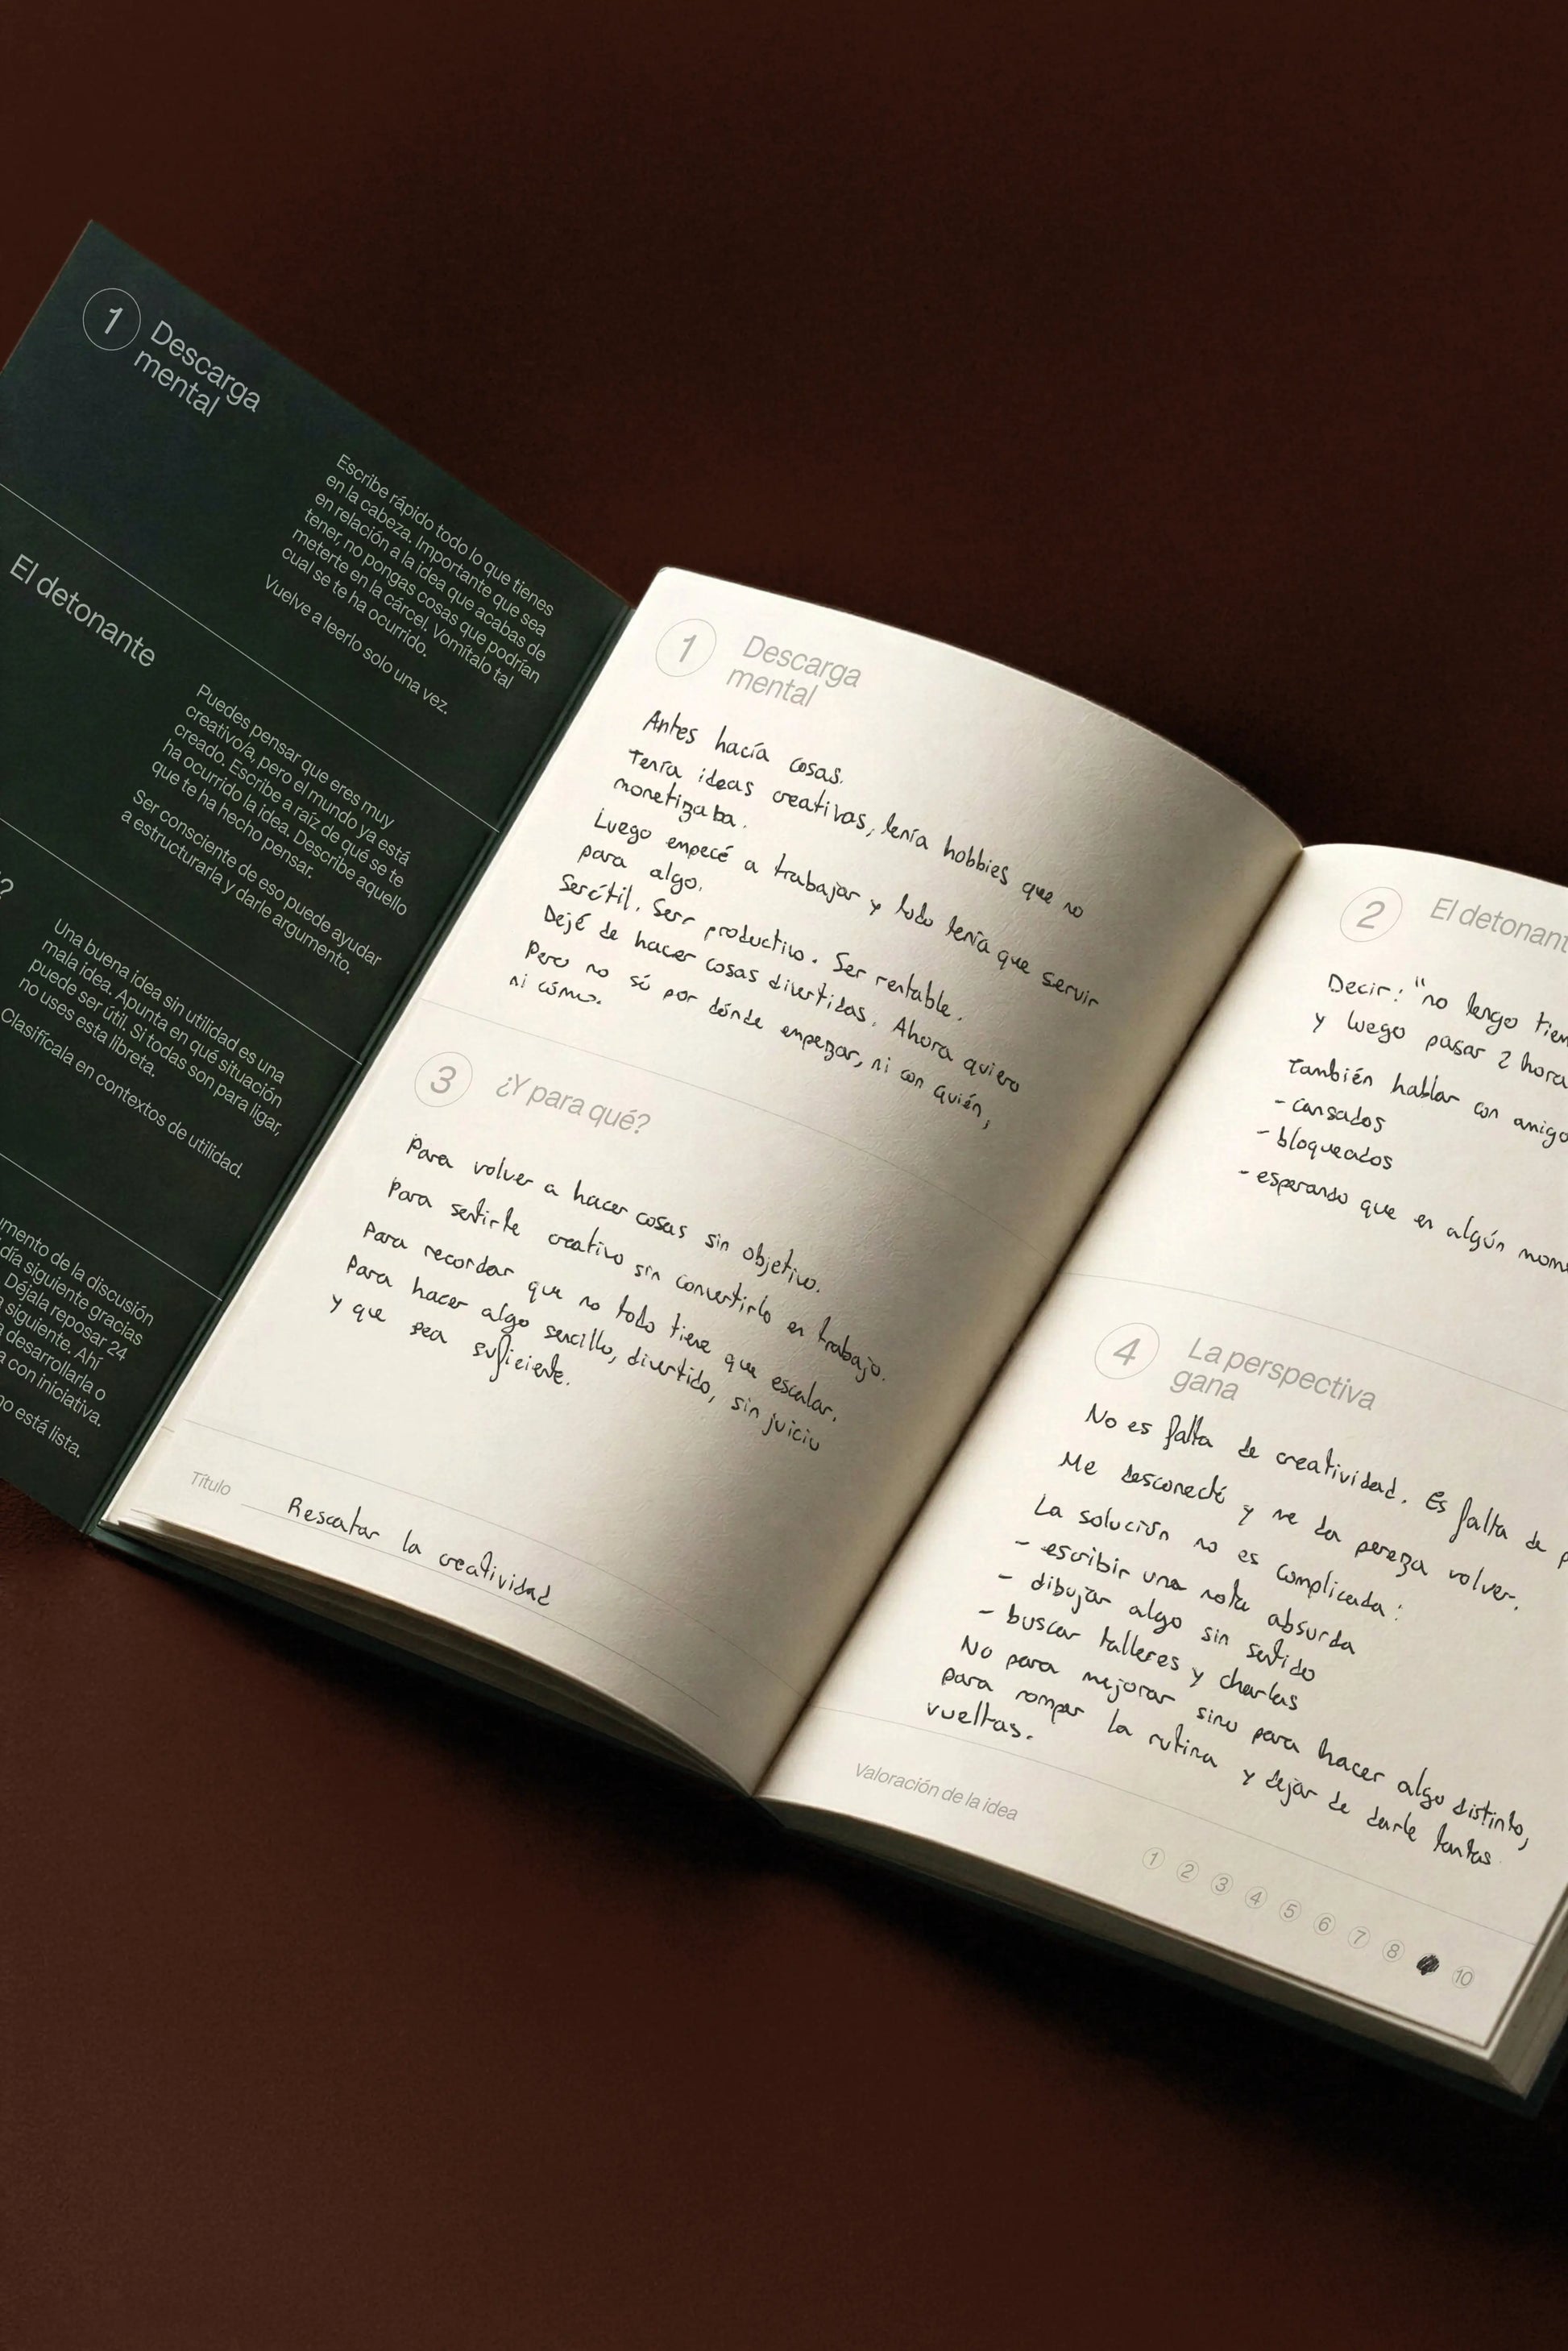 1
Descarga
mental
Escribe rápido todo lo que tienes
en la cabeza. Importante que sea
en relación a la idea que acabas de
tener, no pongas cosas que podrían
meterte en la cárcel. Vomítalo tal
cual se te ha ocurrido.
Vuelve a leerlo solo una vez.
El detonante
Puedes pensar que eres muy
creativo/a, pero el mundo ya está
creado. Escribe a raíz de qué se te
ha ocurrido la idea. Describe aquello
que te ha hecho pensar.
Ser consciente de eso puede ayudar
a estructurarla y darle argumento.
?
Una buena idea sin utilidad es una
mala idea. Apunta en qué situación
puede ser útil. Si todas son para ligar,
no uses esta libreta.
Clasifícala en contextos de utilidad.
mento de la discusión
día siguiente gracias
Déjala reposar 24
siguiente. Ahí
desarrollarla o
con iniciativa.
no está lista.
1
Descarga
mental
Antes hacía cosas.
Tenía ideas creativas, tenía hobbies que no
monetizaba.
Luego empecé a trabajar y todo tenía que servir
para algo.
Ser útil. Ser productivo. Ser rentable.
Dejé de hacer cosas divertidas. Ahora quiero
Pero no sé por dónde empezar, ni con quién,
ni cómo.
3
¿Y para qué?
Para volver a hacer cosas sin objetivo.
Para sentirte creativo sin convertirlo en trabajo.
Para recordar que no todo tiene que escalar.
Para hacer algo sencillo, divertido, sin juicio
y que sea suficiente.
Título
Rescatar la creatividad
2
El detonant
Decir: "no tengo tiem
y luego pasar 2 hora
También hablar con amigo
- cansados
- bloqueados
- esperando que en algún mom
4
La perspectiva
gana
No es falta de creatividad. Es falta de p
Me desconecté y me da pereza volver.
La solución no es complicada:
- escribir una nota absurda
- dibujar algo sin sentido
- buscar talleres y charlas
No para mejorar sino para hacer algo distinto,
para romper la rutina y dejar de darle tantas
vueltas.
Valoración de la idea
1 2 3 4 5 6 7 8 10